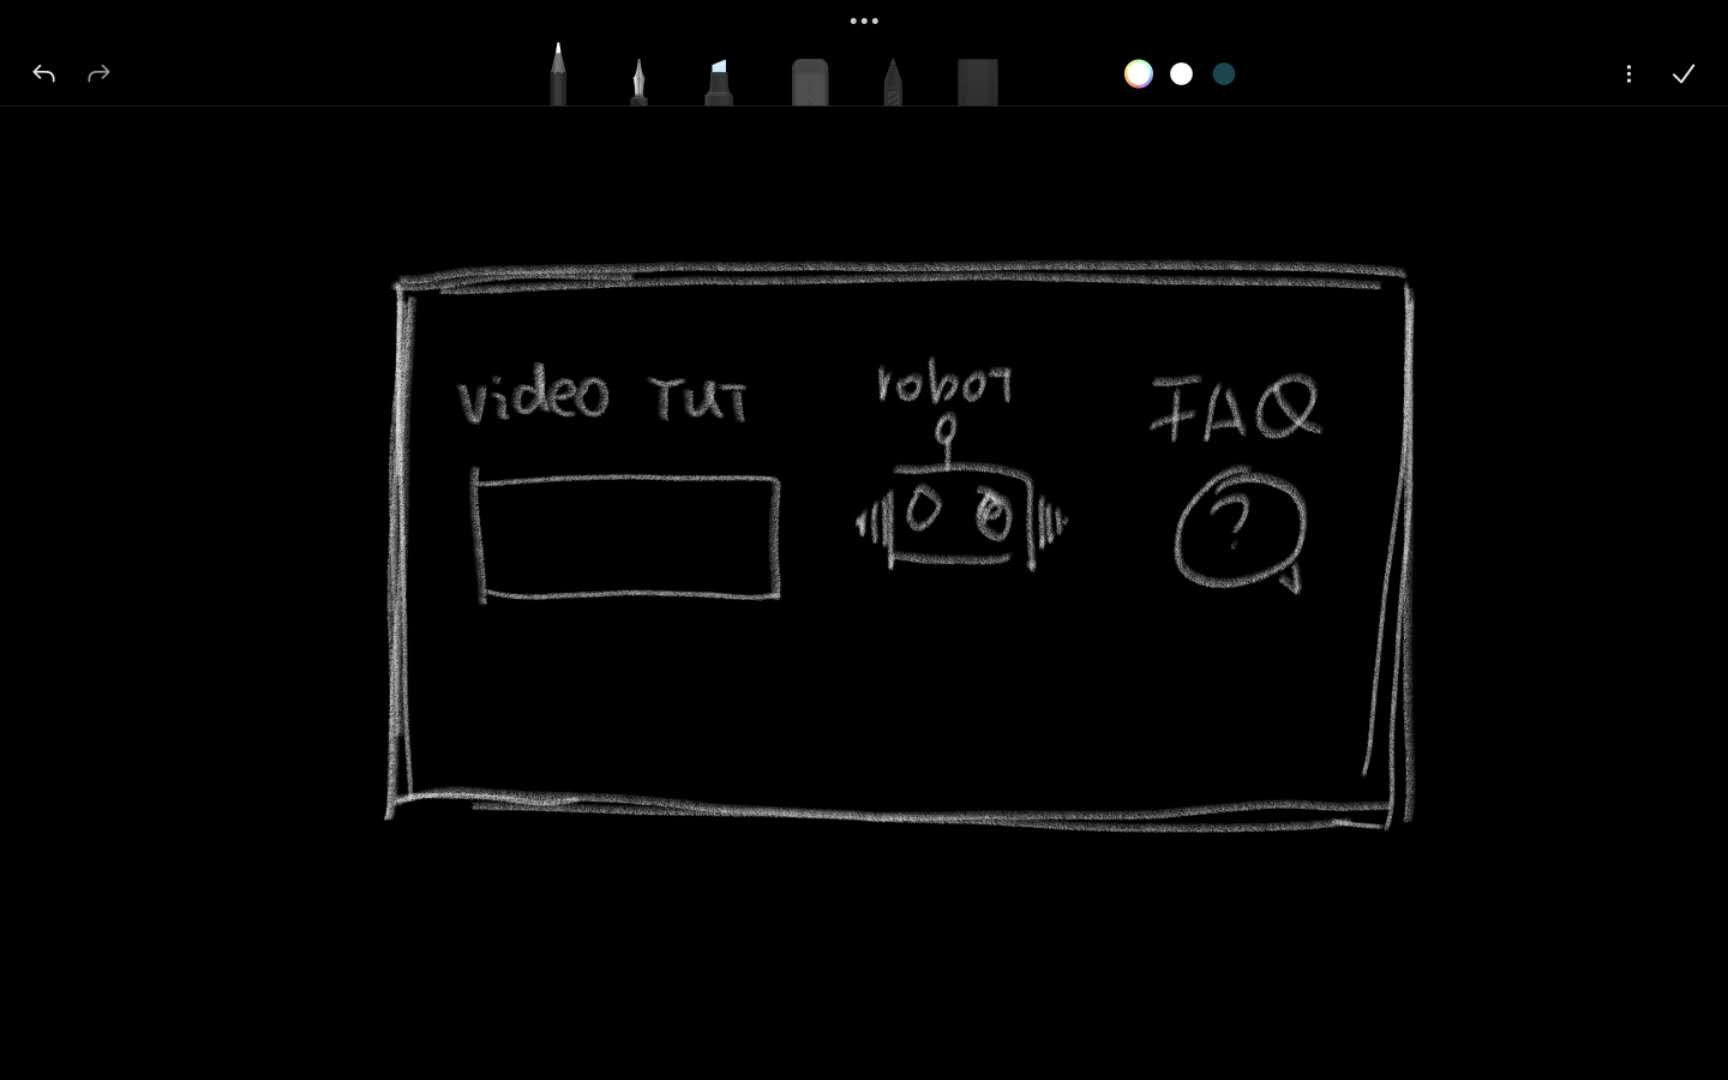 video TUT
robot
FAQ
?